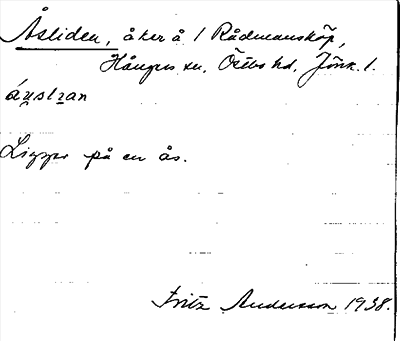 Åsliden, åker å 1 Rådmansköp,
Hångers sn, Östbo hd, Jönk. l.
Ligger på en ås.
Fritz Andersson 1938.